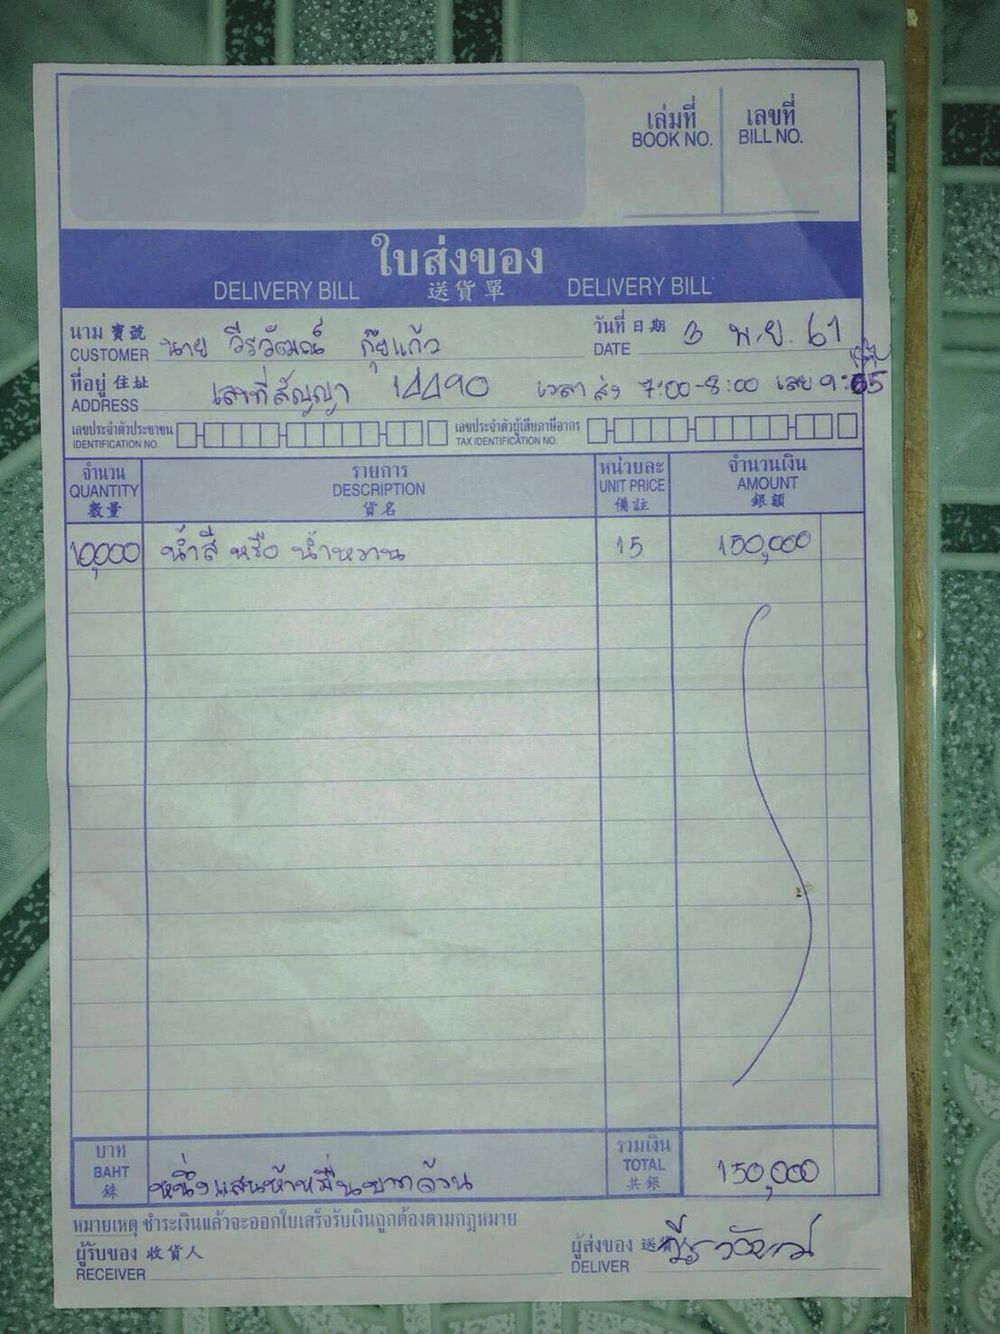 เล่มที่ เลขที่
BOOK NO. BILL NO.
ใบส่งของ
DELIVERY BILL 送貨單 DELIVERY BILL
นาม 寶號 นาย วีรวัฒณ์ กุ๊ยแก้ว วันที่ 日期 3 พ.ย. 61
CUSTOMER DATE
ที่อยู่ 住址 เลขที่สัญญา 14490 เวลา ส่ง 7:00-8:00
ADDRESS
เลขประจำตัวประชาชน เลขประจำตัวผู้เสียภาษีอากร
IDENTIFICATION NO. TAX IDENTIFICATION NO.
จำนวน รายการ หน่วยละ จำนวนเงิน
QUANTITY DESCRIPTION UNIT PRICE AMOUNT
數量 貨名 備註 銀額
10,000 น้ำสี หรือ น้ำหวาน 15 150,000
บาท รวมเงิน
BAHT หนึ่งแสนห้าหมื่นบาทถ้วน TOTAL 150,000
銖 共銀
หมายเหตุ ชำระเงินแล้วจะออกใบเสร็จรับเงินถูกต้องตามกฎหมาย
ผู้รับของ 收貨人 ผู้ส่งของ
RECEIVER DELIVER